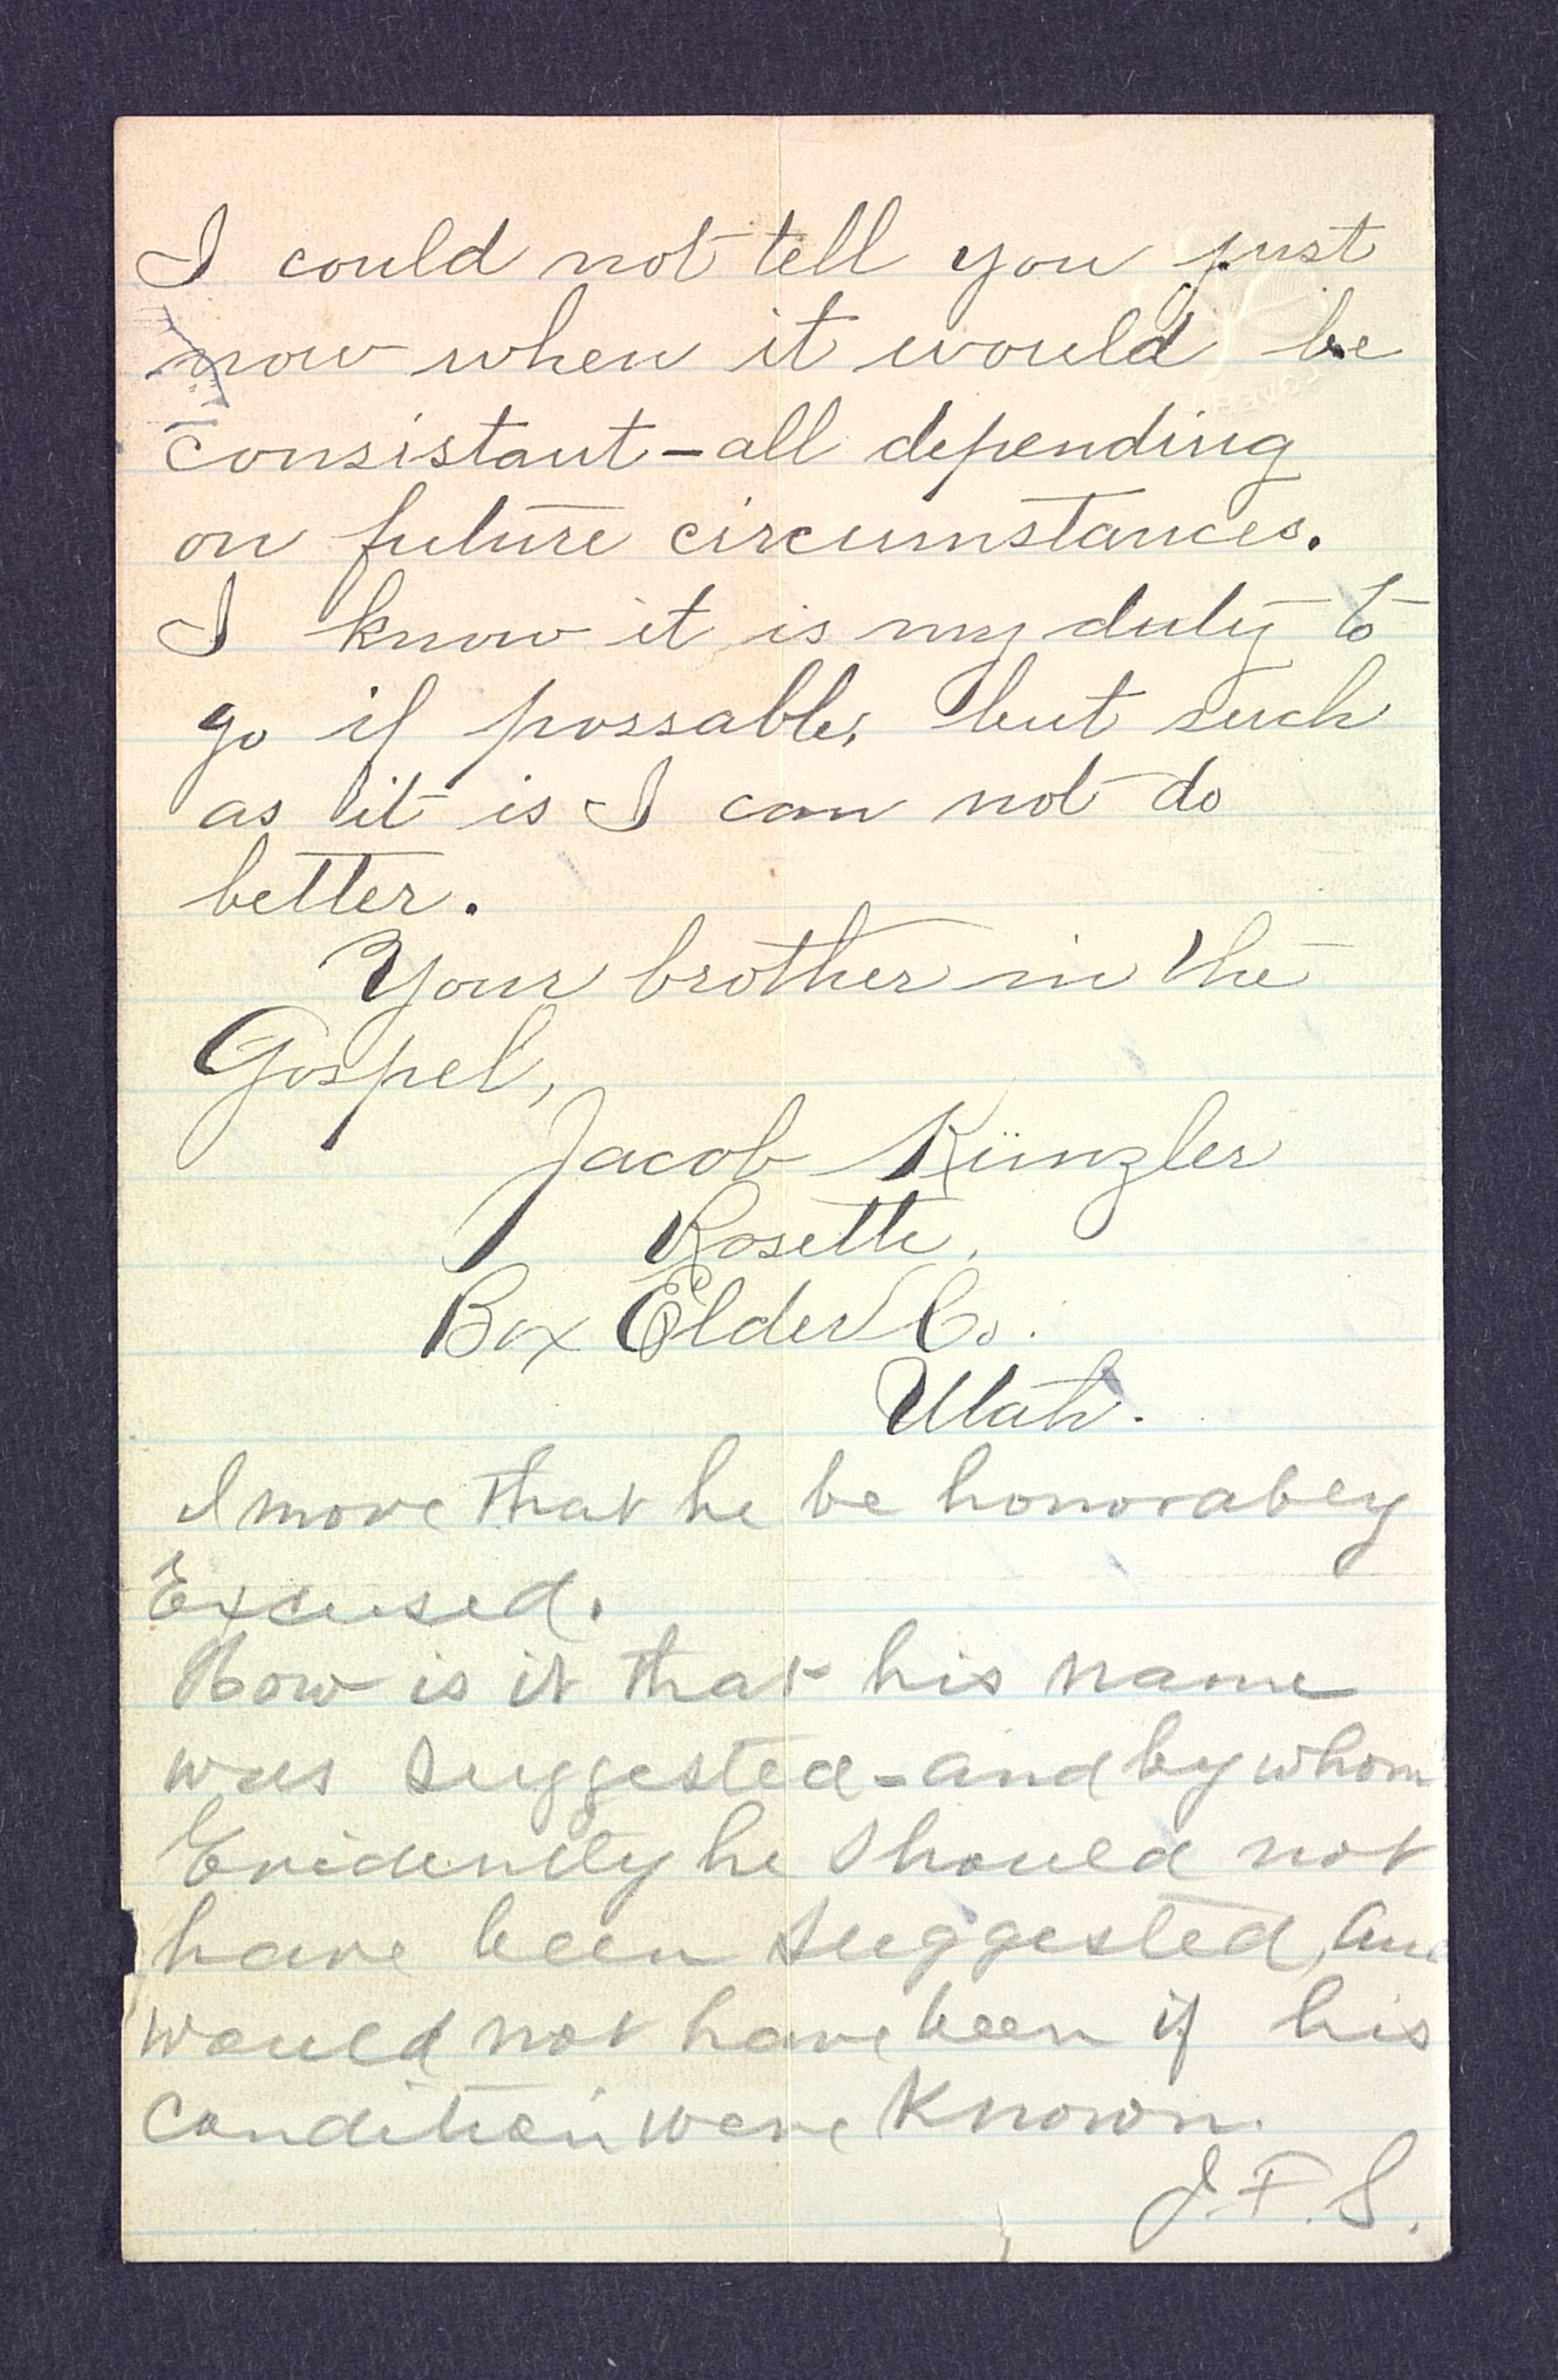 I could not tell you just
now when it would be
consistant - all depending
on future circumstances.
I know it is my duty to
go if possable, but such
as it is I can not do
better.
Your brother in the
Gospel,
Jacob Künzler
Rosette,
Box Elder Co.
Utah.
I move that he be honorabey
Excused.
How is it that his name
was suggested - and by whom
Evidently he should not
have been suggested, and
would not have been if his
condition were known.
J. F. S.